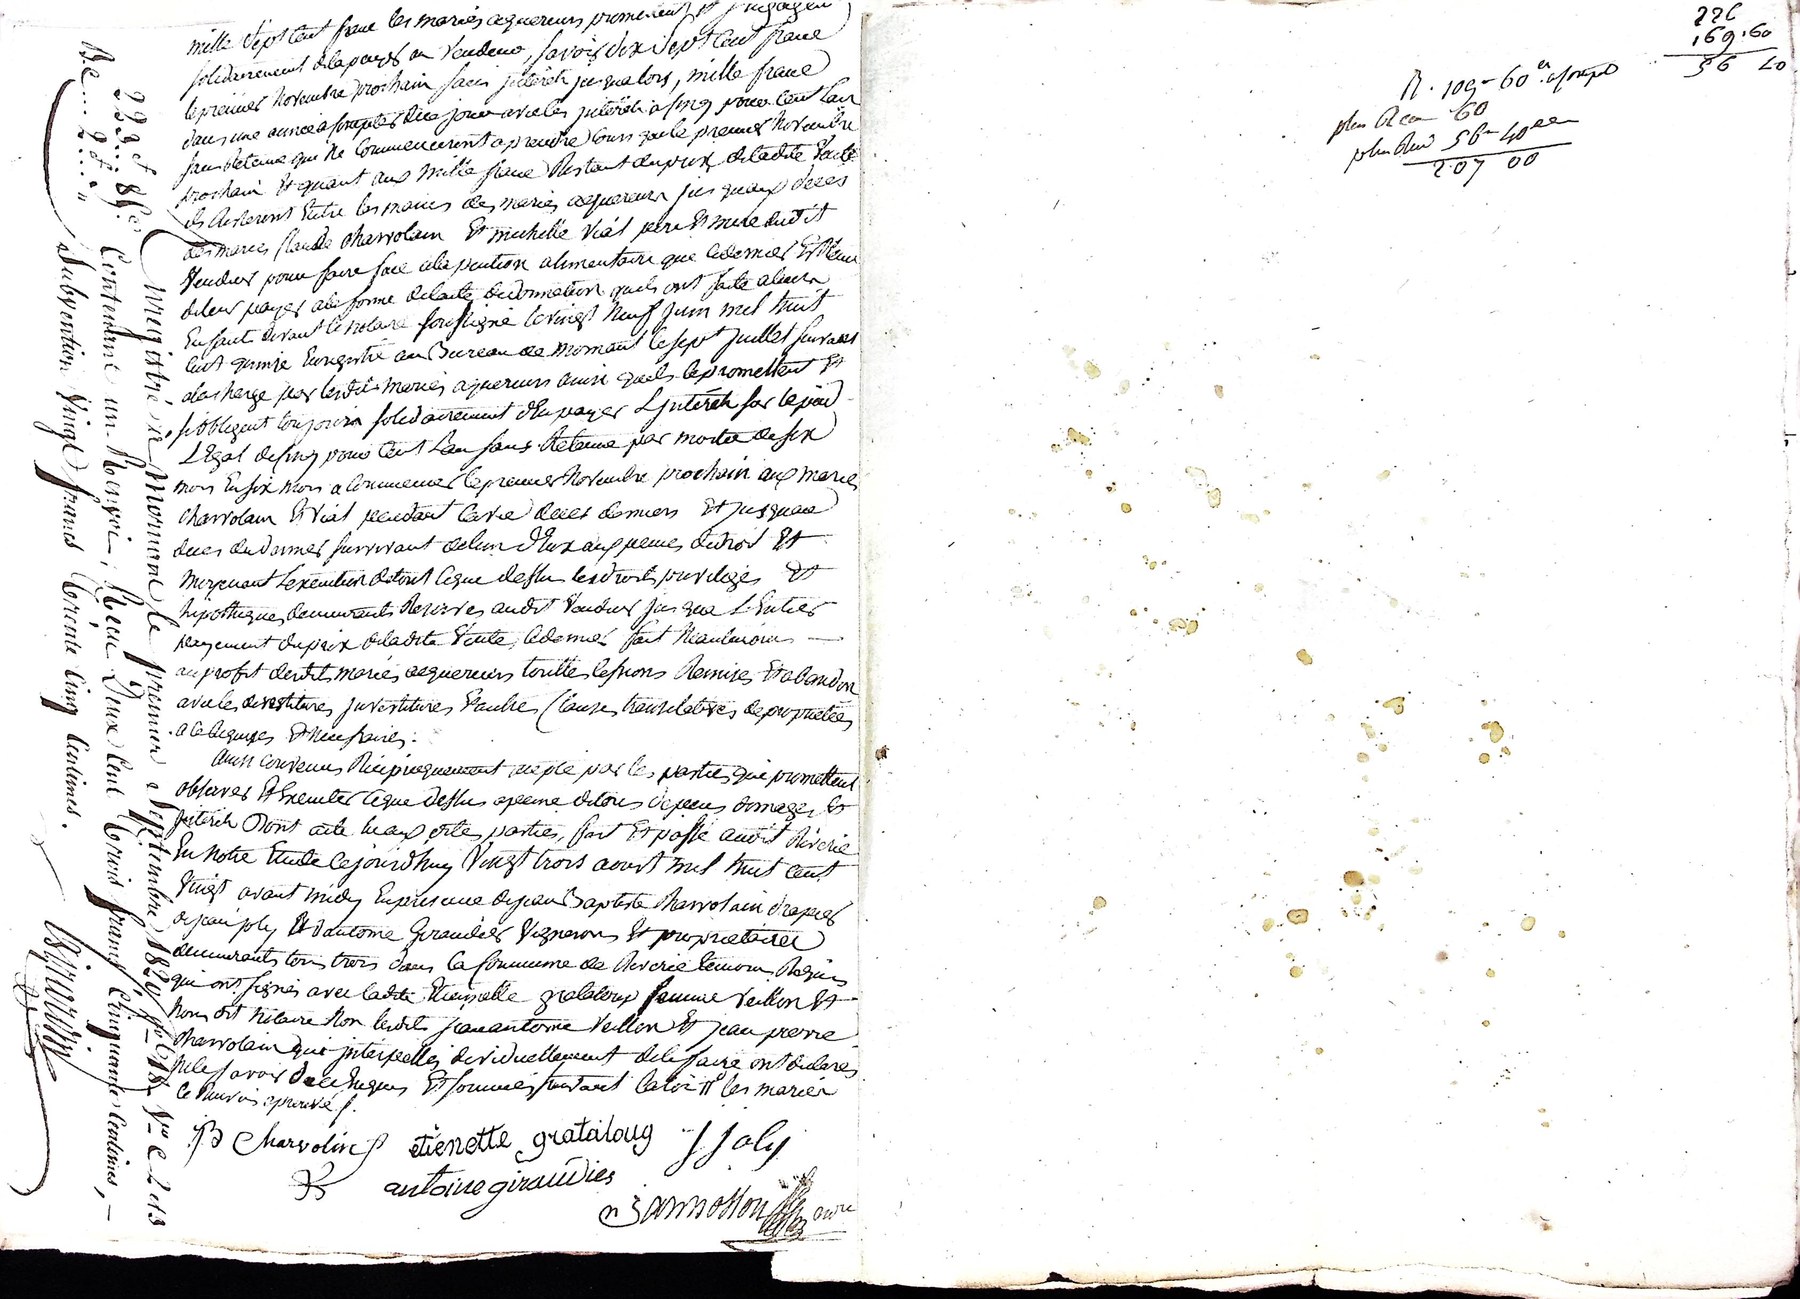 mille sept cent franc les mariés aquereurs promettent et s'engagent
solidairement de la payer au vendeur, savoir dix sept cent franc
le premier novembre prochain sans jnterêt jusqualors, mille franc
dans une année a compter de ce jour avec les jnterêts a cinq pour cent l'an
sans retenue qui ne commenceront a prendre cours que le premier novembre
prochain Et quant aux mille franc Restant du prix de ladite Vente
ils Resteront Entre les mains des mariés aquereurs jusquaux deces
des mariés Claude Charvolain Et michelle Vial pere Et mere dudit
Vendeur pour faire face a la pention alimentaire que ce dernier Est tenu
de leur payer a la forme de l'acte de donnation quils ont faite a leurs
Enfants devant le notaire soussigné le vingt neuf juin mil huit
cent quinze Enregistré au Bureau de mornant le sept juillet suivant
a la charge par lesdits mariés aquereurs ainsi quils le promettent Et
s'obligent toujours solidairement d'En payer L'jnterêt sur le pied
Légal de cinq pour cent L'an sans Retenue par moitié de six
mois En six mois a Commencer le premier Novembre prochain aux mariés
Charvolain Et Vial pendant la vie de ces derniers Et jusquau
deces du dernier survivant de l'un d'Eux aux peines de droit Et
moyenant L'exécution de tout ce que dessus les droits privilèges Et
hipotheques demeurants Reservés audit Vendeur jusqua L'Entier
payement du prix de ladite Vente, ce dernier fait Neanlmoins
au profit desdits mariés aquereurs toutte cessions Remises Et abandon
avec les devestitures jnvestitures Et autre Clauses translatives de proprietées
a ce Requises Et Necessaires.
Ainsi convenu Réciproquement accepté par les parties qui promettent
observer Et Executer ce que dessus a peine de tous depens domages Et
jnterêts Dont acte lu aux dites parties, fait Et passé audit Riverie
En Notre Etude Cejourd'huy Vingt trois aoust mil huit cent
Vingt avant midy En presence de jean Baptiste Charvolain drapier
de jean joly Et d'antoine Giraudier Vignerons Et proprietaires
demeurants tous trois dans la Commune de Riverie temoins Requis
qui ont signés avec ladite Etiennette grataloup femme Veillon Et
Nous dit Notaire Non lesdits jean antoine Veillon Et jean pierre
Charvolain qui jnterpellés dividuellement de le faire ont declarés
ne le savoir de ce Enquis Et sommés suivant la loi les mariés
B Charvolin etienette grataloug J Joly
antoine giraudier
n Jamnosson
Enregistré a Mornant le premier Septembre 1820
Contenant un Renvoi; Reçu Deux Cent Trente francs Cinquante Centimes, —
Subvention Vingt francs trente Cinq Centimes.
226
169.60
56 40
R. 109 - 60
plus Recu 60
plus Recu 56 - 40
207 00